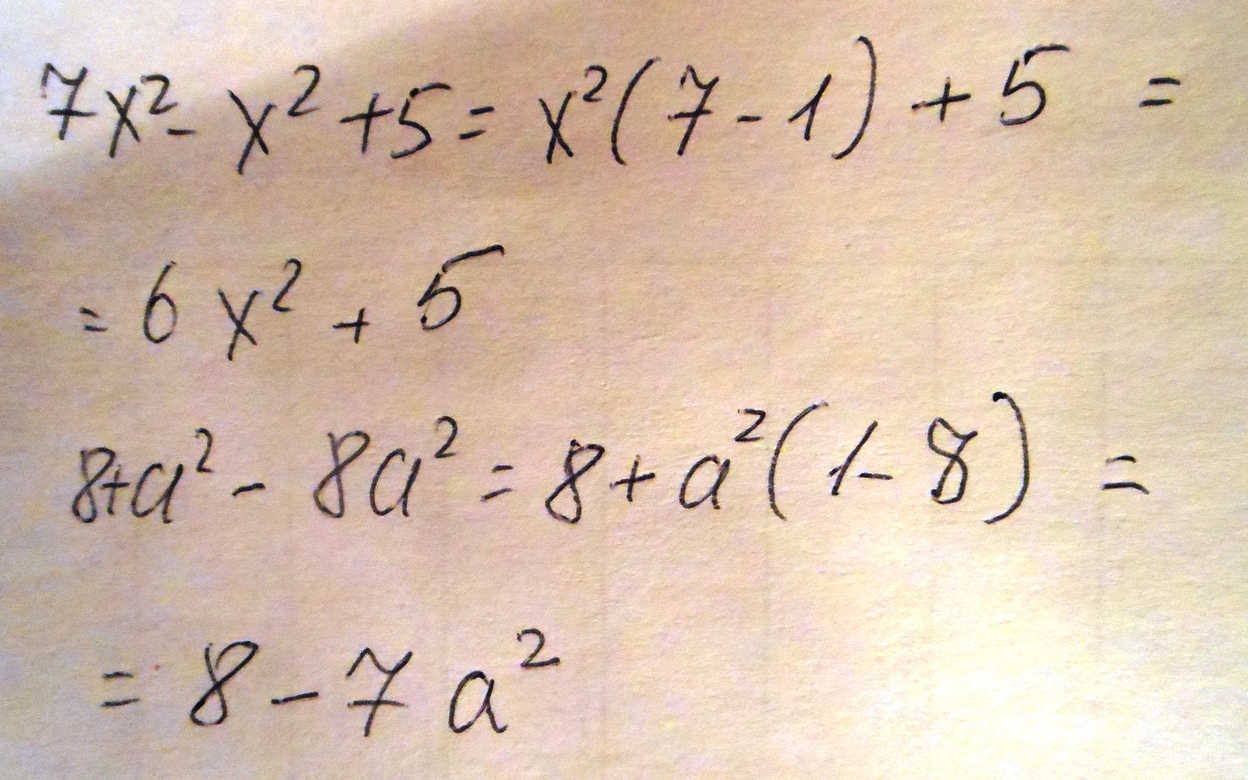 7x² - x² + 5 = x²(7 - 1) + 5 =
= 6x² + 5
8 + a² - 8a² = 8 + a²(1 - 8) =
= 8 - 7a²